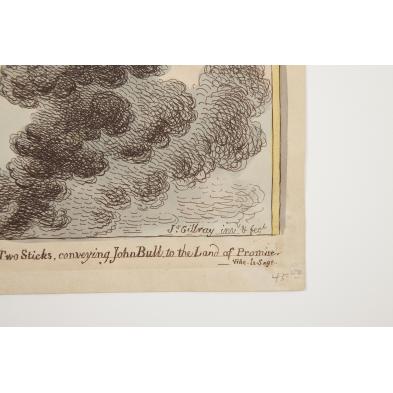 Js Gillray invt & fect
Two Sticks, conveying John Bull, to the Land of Promise.
Vide. Le Sage.
45.00